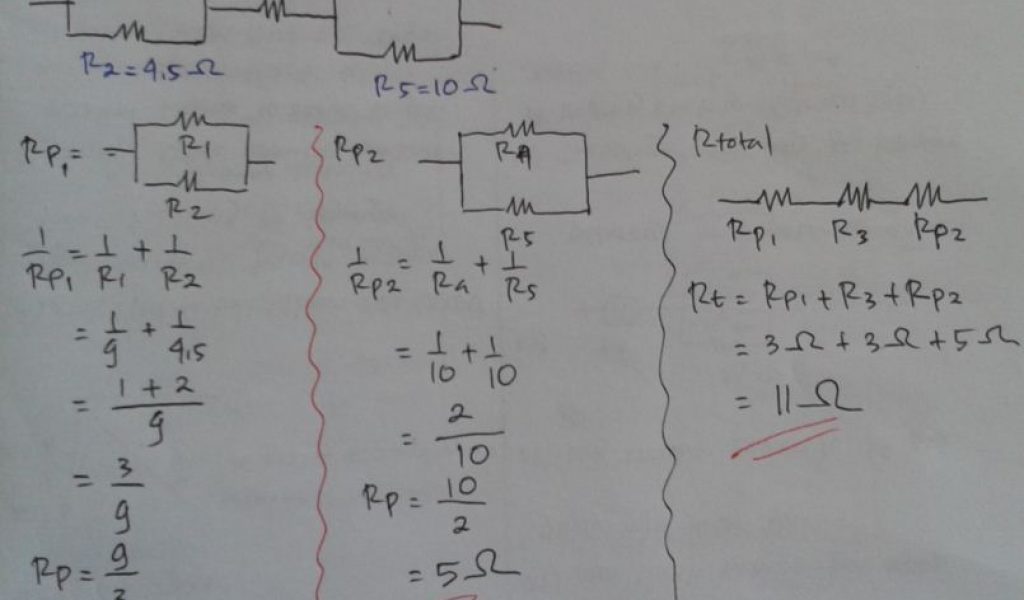 R2 = 4,5 Ω
R5 = 10 Ω
Rp1 =
R1
R2
1/Rp1 = 1/R1 + 1/R2
= 1/9 + 1/4,5
= 1 + 2 / 9
= 3/9
Rp = 9/3
Rp2
R4
R5
1/Rp2 = 1/R4 + 1/R5
= 1/10 + 1/10
= 2/10
Rp = 10/2
= 5 Ω
Rtotal
Rp1 R3 Rp2
Rt = Rp1 + R3 + Rp2
= 3 Ω + 3 Ω + 5 Ω
= 11 Ω